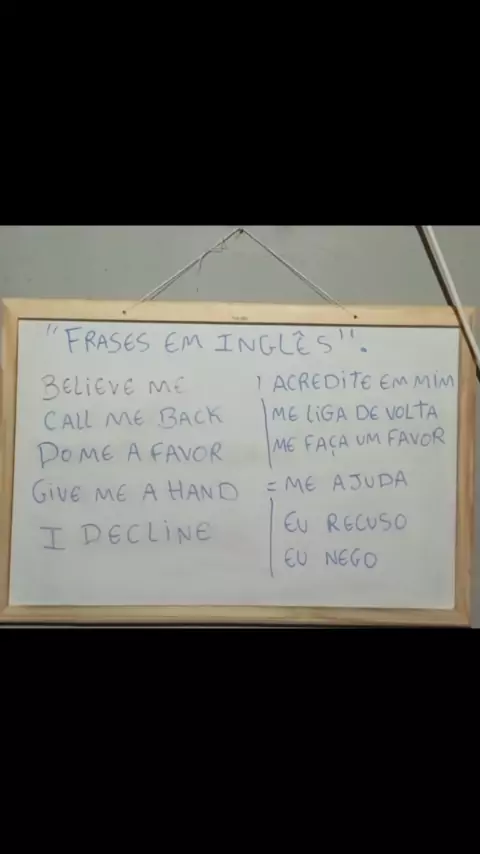 "FRASES EM INGLÊS".
BELIEVE ME | ACREDITE EM MIM
CALL ME BACK | ME LIGA DE VOLTA
DO ME A FAVOR | ME FAÇA UM FAVOR
GIVE ME A HAND = ME AJUDA
I DECLINE | EU RECUSO
EU NEGO